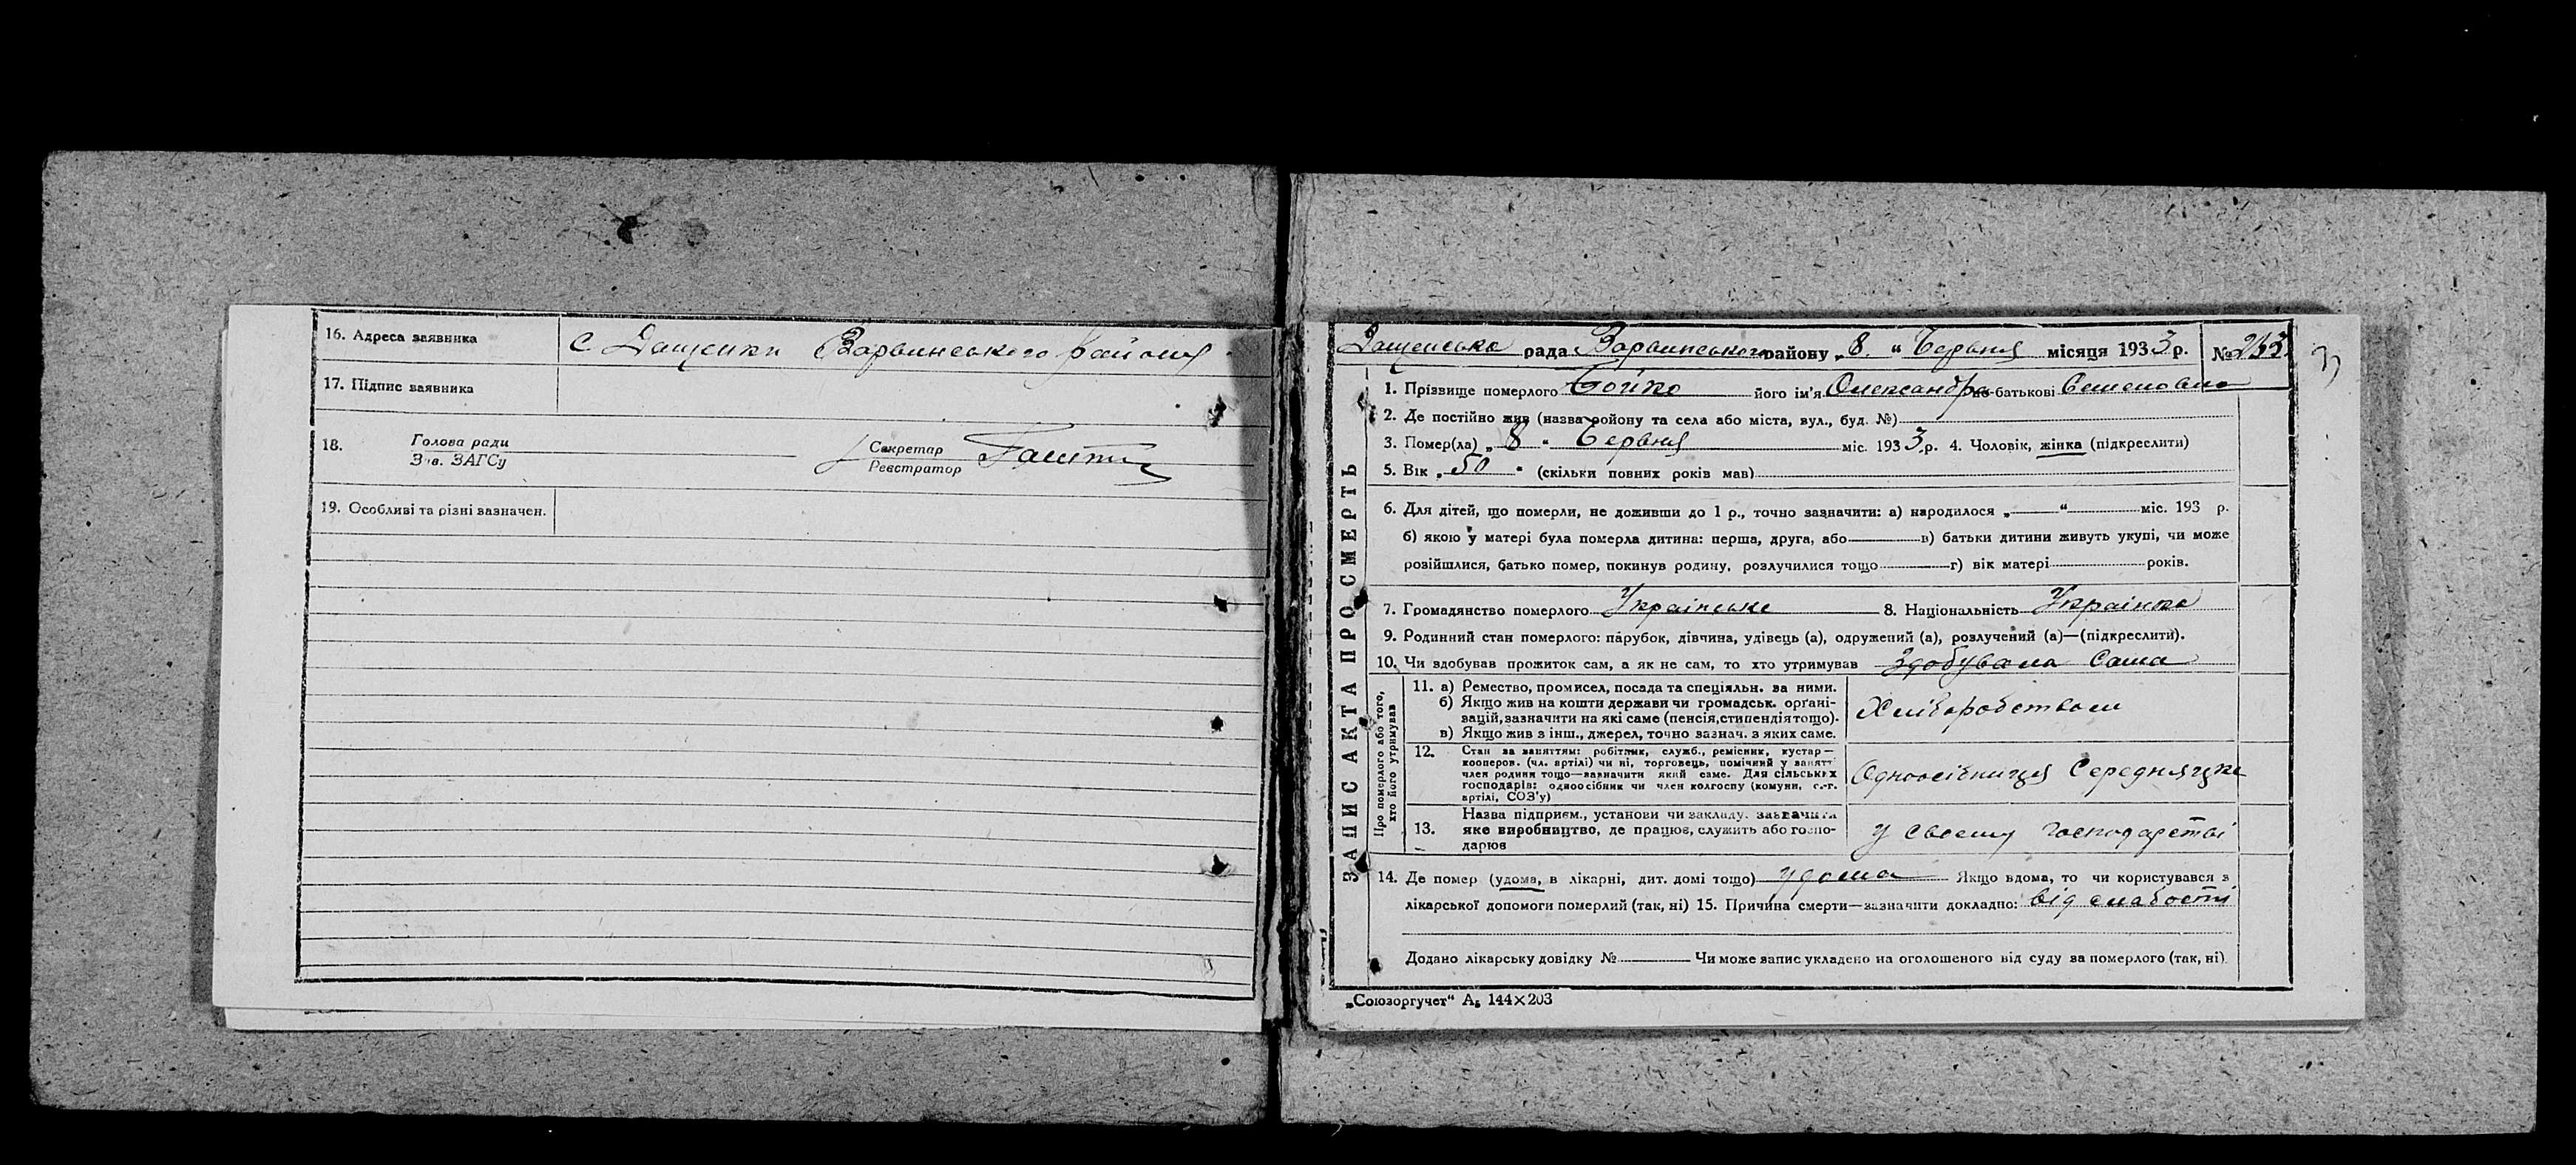 16. Адреса заявника с Дащенки Варвинського району
17. Підпис заявника
18. Голова ради
Зав. ЗАГСу
Секретар
Реєстратор
19. Особливі та різні зазначен.
Дащенська рада Варвинського району „8“ Червня місяця 1933 р. №
ЗАПИС АКТА ПРО СМЕРТЬ
1. Прізвище померлого Бойко його ім'я Олександра по-батькові Семеновна
2. Де постійно жив (назва району та села або міста, вул., буд. №)
3. Помер(ла) „8“ Червня міс. 1933 р. 4. Чоловік, жінка (підкреслити)
5. Вік „50“ (скільки повних років мав)
6. Для дітей, що померли, не доживши до 1 р., точно зазначити: а) народилося „ “ міс. 193 р.
б) якою у матері була померла дитина: перша, друга, або в) батьки дитини живуть укупі, чи може
розійшлися, батько помер, покинув родину, розлучилися тощо г) вік матері років.
7. Громадянство померлого Українське 8. Національність Українка
9. Родинний стан померлого: парубок, дівчина, удівець (а), одружений (а), розлучений (а)—(підкреслити).
10. Чи здобував прожиток сам, а як не сам, то хто утримував Здобувала Сама
Про померлого або того,
хто його утримував
11. а) Ремество, промисел, посада та спеціяльн. за ними.
б) Якщо жив на кошти держави чи громадськ. орґані-
зацій, зазначити на які саме (пенсія, стипендія тощо).
в) Якщо жив з інш., джерел, точно зазнач. з яких саме.
Хліборобством
12. Стан за заняттям: робітник, служб., ремісник, кустар—
кооперов. (чл. артілі) чи ні, торговець, помічний у занятті
член родини тощо—зазначити який саме. Для сільських
господарів: одноосібник чи член колгоспу (комуни, с.-г.
артілі, СОЗ'у)
Одноосібниця Середнячка
13. Назва підприєм., установи чи закладу, зазначити
яке виробництво, де працює, служить або госпо-
дарює
У своєму господарстві
14. Де помер (удома, в лікарні, дит. домі тощо) удома Якщо вдома, то чи користувався з
лікарської допомоги померлий (так, ні) 15. Причина смерти—зазначити докладно: Від слабости
Додано лікарську довідку № Чи може запис укладено на оголошеного від суду за померлого (так, ні)
„Союзоргучет“ А₅ 144×203